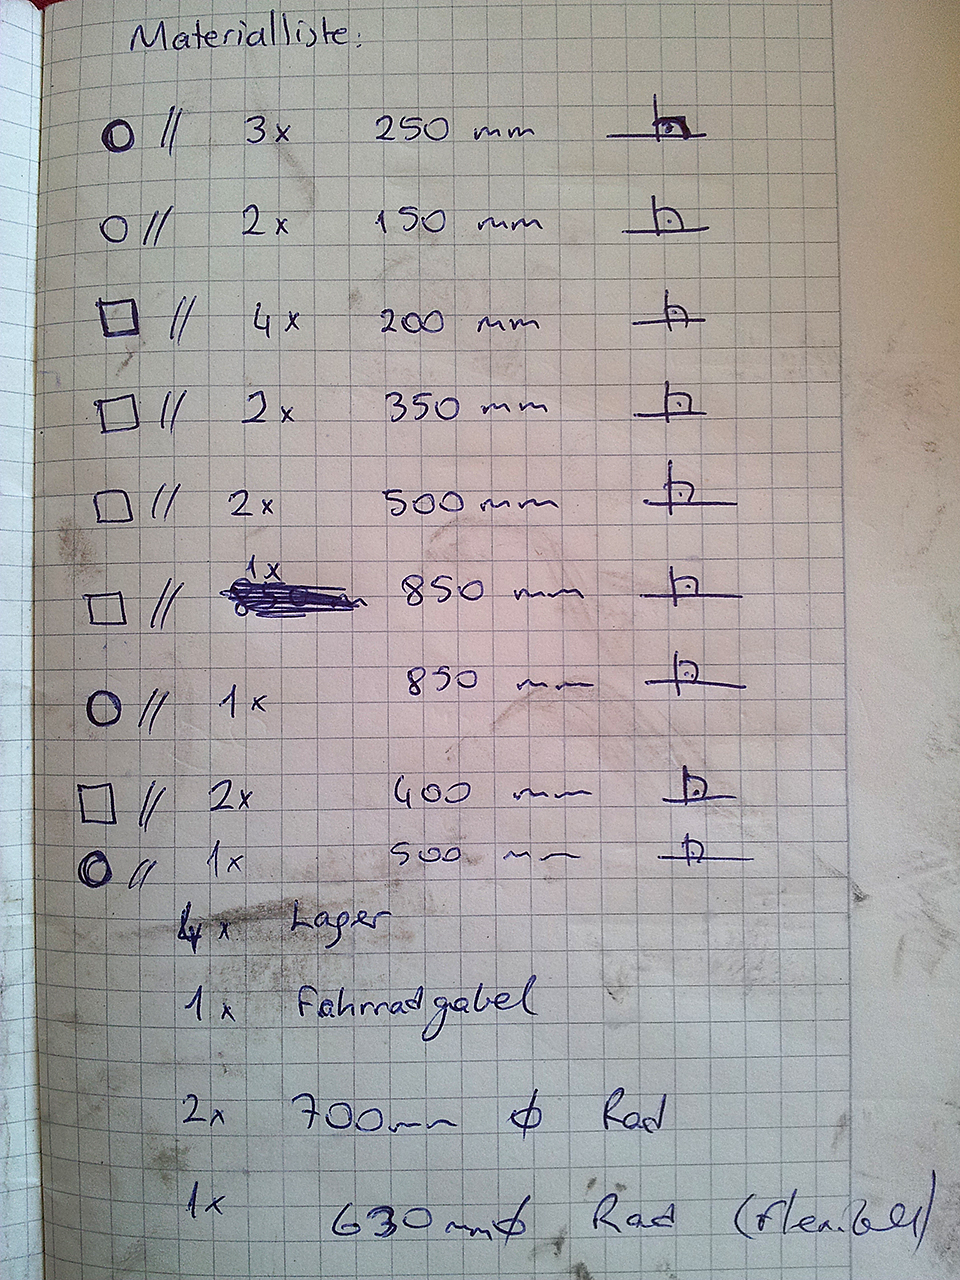 Materialliste:
○ // 3x 250 mm
○ // 2x 150 mm
□ // 4x 200 mm
□ // 2x 350 mm
□ // 2x 500 mm
□ // 1x 850 mm
○ // 1x 850 mm
□ // 2x 400 mm
○ // 1x 500 mm
4x Lager
1x Fahrradgabel
2x 700mm ϕ Rad
1x 630mmϕ Rad